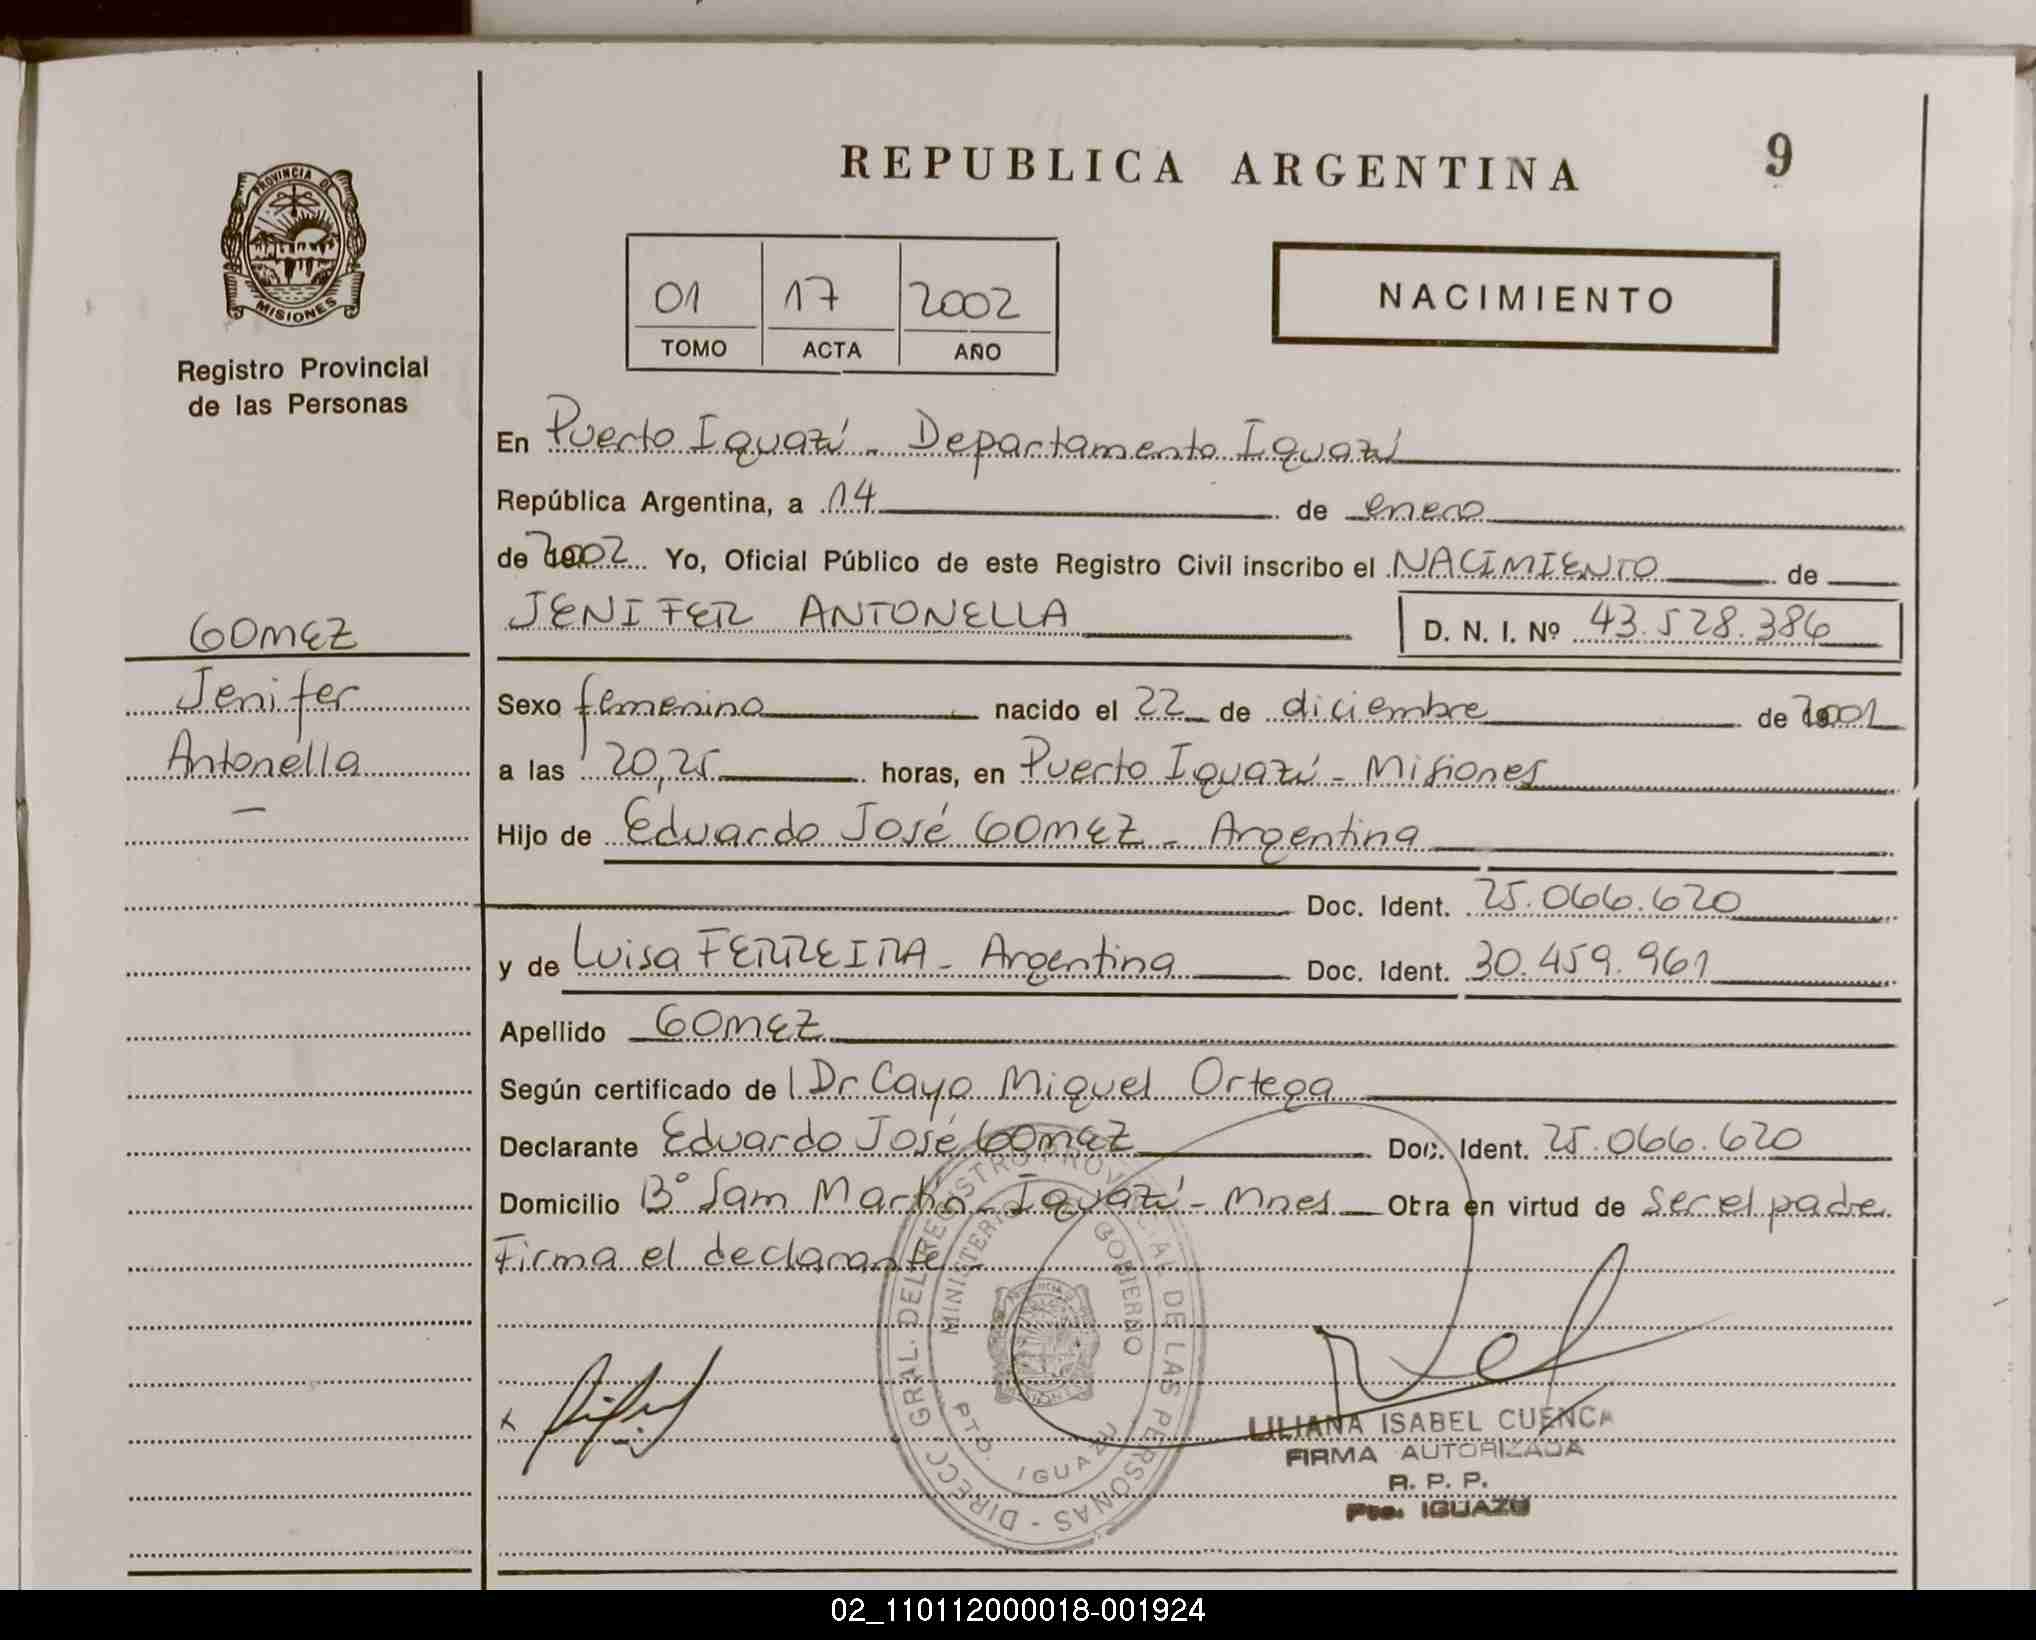 REPUBLICA ARGENTINA
9
PROVINCIA DE
MISIONES
Registro Provincial
de las Personas
01 17 2002
TOMO ACTA AÑO
NACIMIENTO
En Puerto Iguazú - Departamento Iguazú
República Argentina, a 14 de enero
de 2002 Yo, Oficial Público de este Registro Civil inscribo el NACIMIENTO de
JENIFER ANTONELLA D. N. I. Nº 43.528.386
GOMEZ
Jenifer
Antonella
Sexo femenino nacido el 22 de diciembre de 2001
a las 20,25 horas, en Puerto Iguazú - Misiones
Hijo de Eduardo José GOMEZ - Argentina
Doc. Ident. 25.066.620
y de Luisa FERREIRA - Argentina Doc. Ident. 30.459.961
Apellido GOMEZ
Según certificado de Dr Cayo Miguel Ortega
Declarante Eduardo José GOMEZ Doc. Ident. 25.066.620
Domicilio Bº San Martín - Iguazú - Mnes Obra en virtud de ser el padre
Firma el declarante
DIRECC. GRAL. DEL REGISTRO PROVINCIAL DE LAS PERSONAS -
MINISTERIO DE GOBIERNO
PTO. IGUAZU
LILIANA ISABEL CUENCA
FIRMA AUTORIZADA
R. P. P.
Pto. IGUAZU
02_110112000018-001924